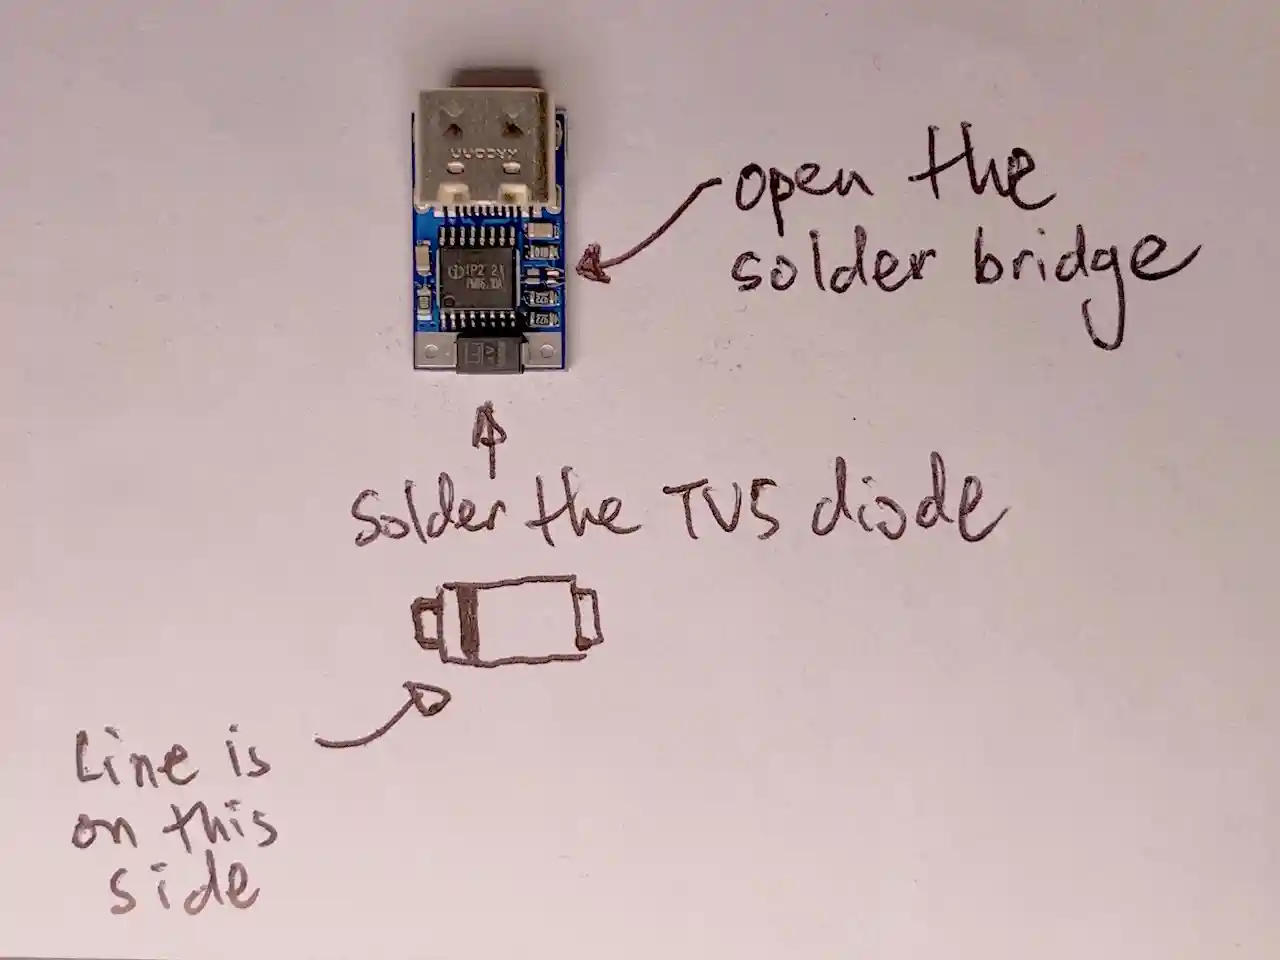 open the
solder bridge
solder the TVS diode
Line is
on this
side